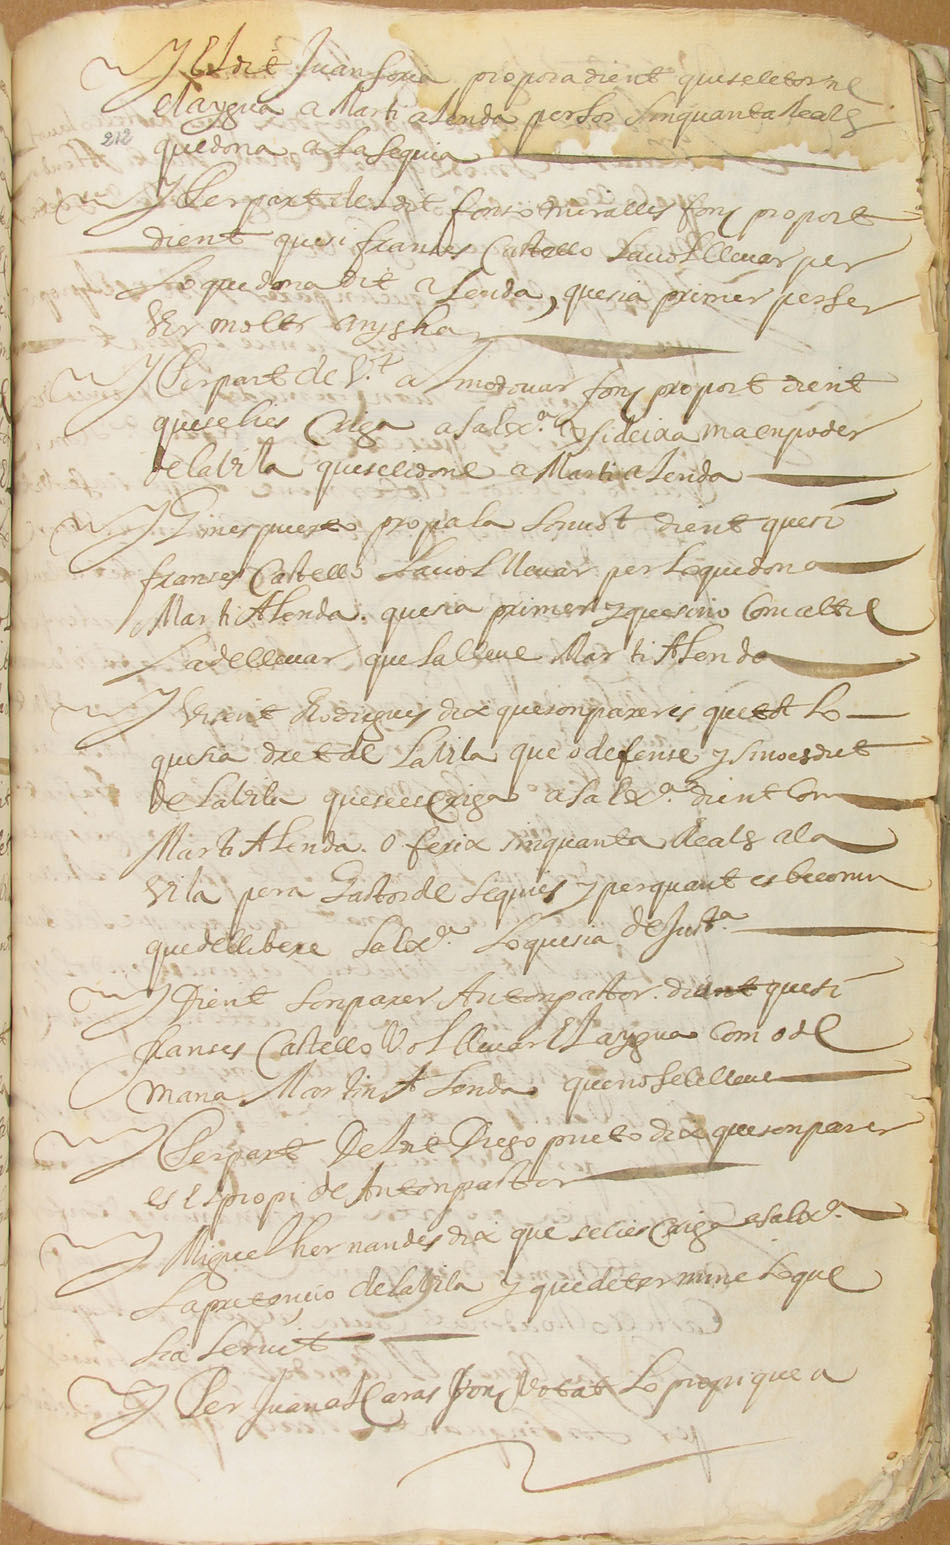 Y El dit Juan Soria proposa dient que se le torne
el aygua a Marti Alenda per los sinquanta Reals
212
que dona a la sequia
Y Per part de dit fonso miralles fonc proport
dient que si franses Castello la vol llevar per
lo que dona dit Alenda, que sia primer per ser
ver molts anys ha
Y Per part de V.t Almodovar fonc proport dient
que se lies Criga a sa Ex.a y si deixa ma en poder
de la Vila que se li done a Marti Alenda
Y Gines puerto propala son vot dient que si
franses Castello la vol llevar per lo que dona
Marti Alenda. que sia primer y que si no Com al til
la de llevar que la lleve Marti Alenda
Y Visent Rodrigues dix que son parer es que tot lo
que sia dret de la Vila que o defense y si no es dret
de la Vila que se es Criga a sa Ex.a dient Com
Marti Alenda. oferix sinquanta Reals a la
Vila pera Gastos de sequies y per quant es be comu
que dellibere sa Ex.a lo que sia de Just.a
Y Dient son parer Anton pastor. dient que si
franses Castello Vol llevar El aygua Com o de
mana Martin Alenda que no se le lleve
Y Per part De Diego prieto dix que son parer
es el propi de Anton pastor
Y Miguel hernandes dix que se lies Criga a sa Ex.a
la pretencio de la Vila y que determine lo que
sia servit
Y Per Juan Alcaras fonc Votat lo propi que a